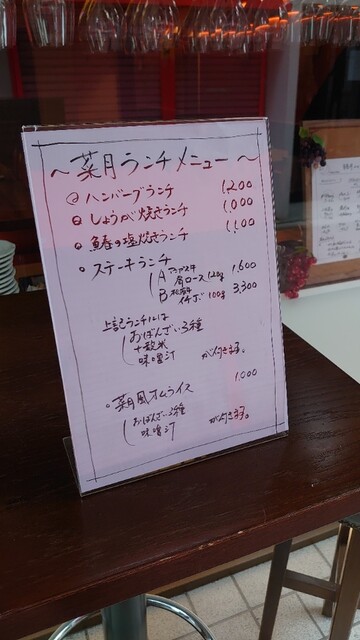 ～菜月ランチメニュー～
ハンバーグランチ 1,200
しょうが焼きランチ 1,000
鰆の塩焼きランチ 1,100
・ステーキランチ
A 肩ロース120g 1,600
B 100g 3,300
上記ランチには
おばんざい3種
十穀米
味噌汁 が付きます。
・菜月風オムライス 1,000
おばんざい3種
味噌汁 が付きます。